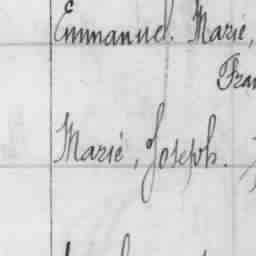 Emmanuel. Marie,
Marie, Joseph.